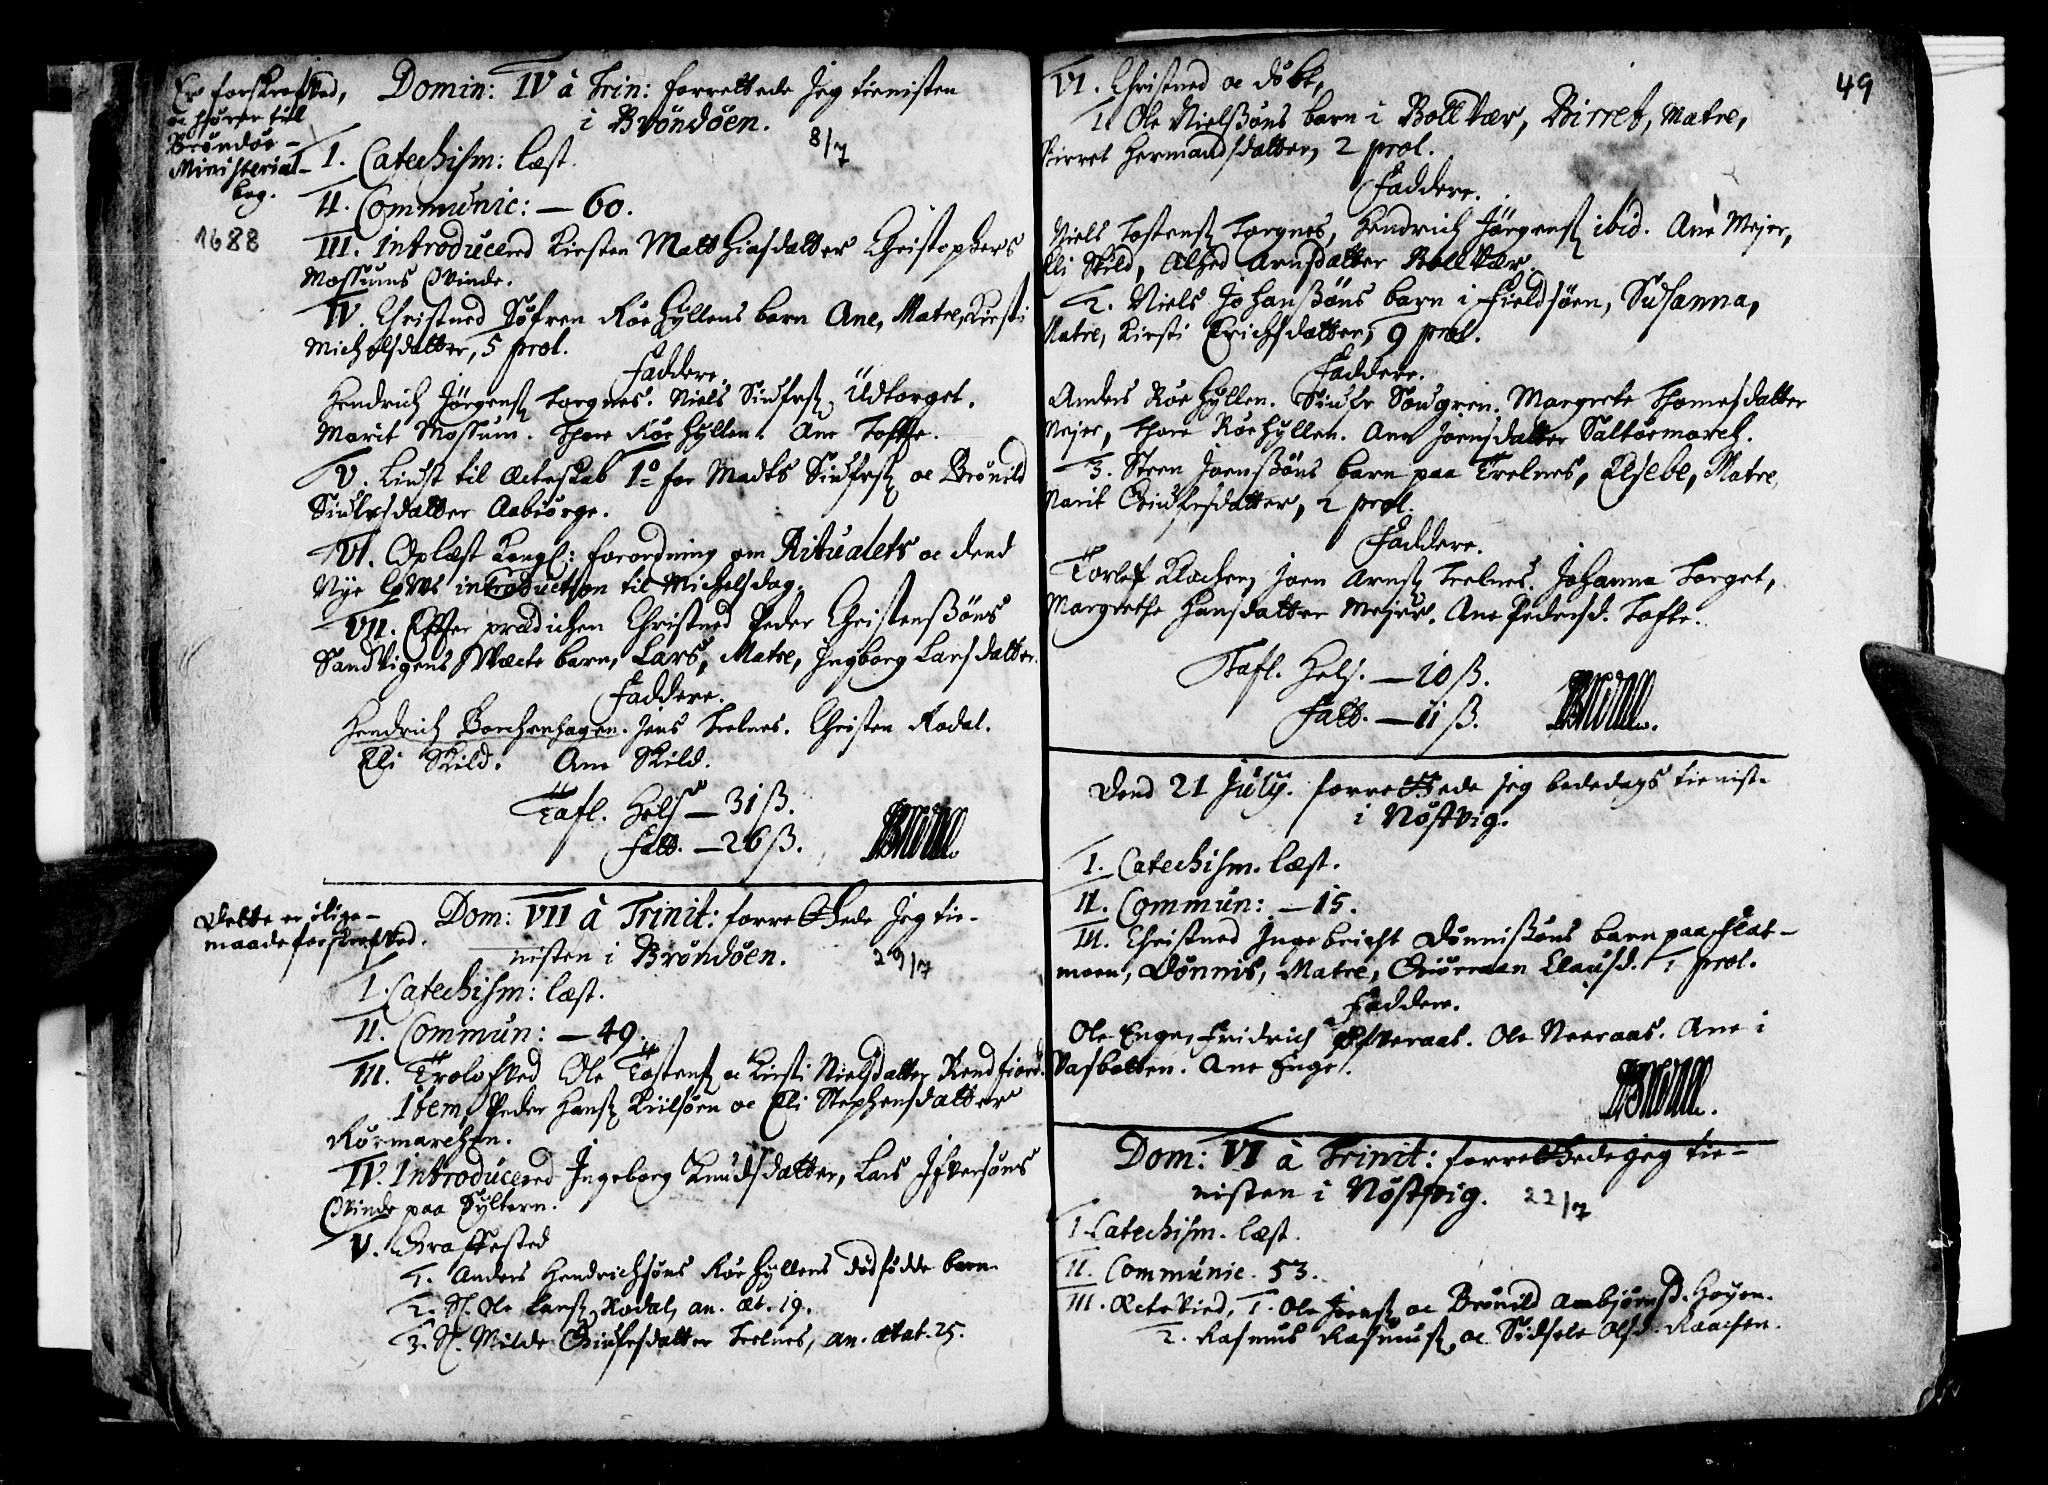 Er forskrefved,
oc hører till
Brøndøe-
Ministerial-
bog.
1688
Domin: IV à Trin: forrettede Jeg tienisten
i Brøndøen.
8/7
I. Catechism: læst.
II. Communic: — 60.
III. Introducered Kirsten Matthiasdatter Christophers
Mossums Qvinde.
IV. Christned Søfren Røe Hyllens barn Ane, Matre, Kirsti
Michelsdatter, 5 præl.
Faddere.
Hendrich Jørgens. Torgnes. Niels Siufrs. Udtorget.
Marit Mossum. Thore Røe Hyllen. Ane Tofte.
V. Liust til Ecteskab 1o for Madts Siufrs. oc Brønild
Siulfsdatter Aabiørge.
VI. Oplæst Kongl: forordning om Ritualets oc dend
Nye introduction til Michelsdag.
VII. Efter prædichen Christned Peder Christenssøns
Sandvigens barn, Lars, Matre, Ingborg Larsdatter.
Faddere.
Hendrich Borchenhagen. Jens Trelnes. Christen Rodal.
Eli Skild. Ane Skild.
Tafl. Hels — 31 ß.
Fatt. — 26 ß.
Dette er ilige-
maade forskrefved.
Dom: VII à Trinit: forrettede Jeg tie-
nisten i Brøndøen.
29/7
I. Catechism: læst.
II. Commun: — 49.
III. Trolofved Ole Tostens. oc Kirsti Nielsdatter Rendfiord.
Item, Peder Hans. Kiilsøen oc Eli Stephensdatter
Rørmarchen.
IV. Introducered Ingeborg Knudsdatter, Lars Ifversøns
Qvinde paa Syltern.
V. Graffested
1. Anders Hendrichsøns Røe Hyllens dødfødde barn
2. Sl. Ole Lars. Rodal, an. æt. 19.
3. Sl. Milde Giufesdatter Trelnes, an. ætat. 25.
49
VI. Christned oc døbt,
1. Ole Nielssøns barn i Bollvær, Birret, Matre,
Birret Hermandsdatter, 2 præl.
Faddere.
Niels Tostens. Torgnes, Hendrich Jørgens. ibid. Ane Mejer,
Eli Skild, Alhed Arnsdatter Bollvær.
2. Niels Johanssøns barn i Fieldsøen, Susanna,
Matre, Kirsti Erichsdatter, 9 præl.
Faddere.
Anders Røe Hyllen. Siulr Sougren. Margrete Thomesdatter
Mejer, Thore Røe Hyllen. Ane Joensdatter Saltørmarch.
3. Steen Joenssøns barn paa Trelnes, Elsebe, Matre
Marit Giufesdatter, 2 præl.
Faddere.
Torlef Klocher, Joen Arns. Trelnes. Johanna Torget,
Margrethe Hansdatter Mejers. Ane Pedersd. Tofte.
Tafl. Hels. — 10 ß.
Fatt. — 11 ß.
Dend 21 July. forrettede jeg bededags tienist.
i Nøstvig.
I. Catechism. læst.
II. Commun: — 15.
III. Christned Ingebricht Dønnissøns barn paa Flat-
moen, Dønnis, Matre, Giørraan Clausd. 1 præl.
Faddere.
Ole Enge, Fridrich Ofveraas. Ole Neeraas. Ane i
Vasbotten. Ane Enge.
Dom: VI à Trinit: forrettede jeg tie-
nisten i Nøstvig. 22/7
I. Catechism. læst.
II. Communic. 53.
III. Ectevied, 1. Ole Joens. oc Brønild Ambjørnsd. Høyen.
2. Rasmus Rasmus. oc Sidsele Olsd. Raachen.